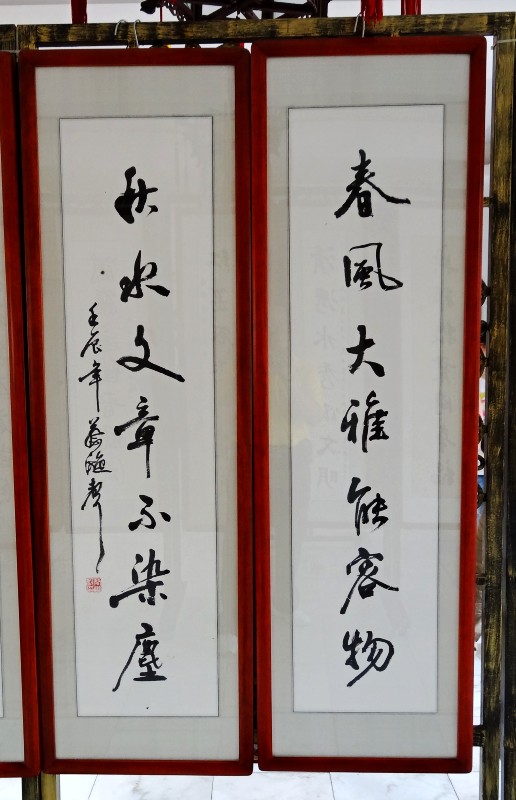 春風大雅能容物
秋水文章不染塵
壬辰年